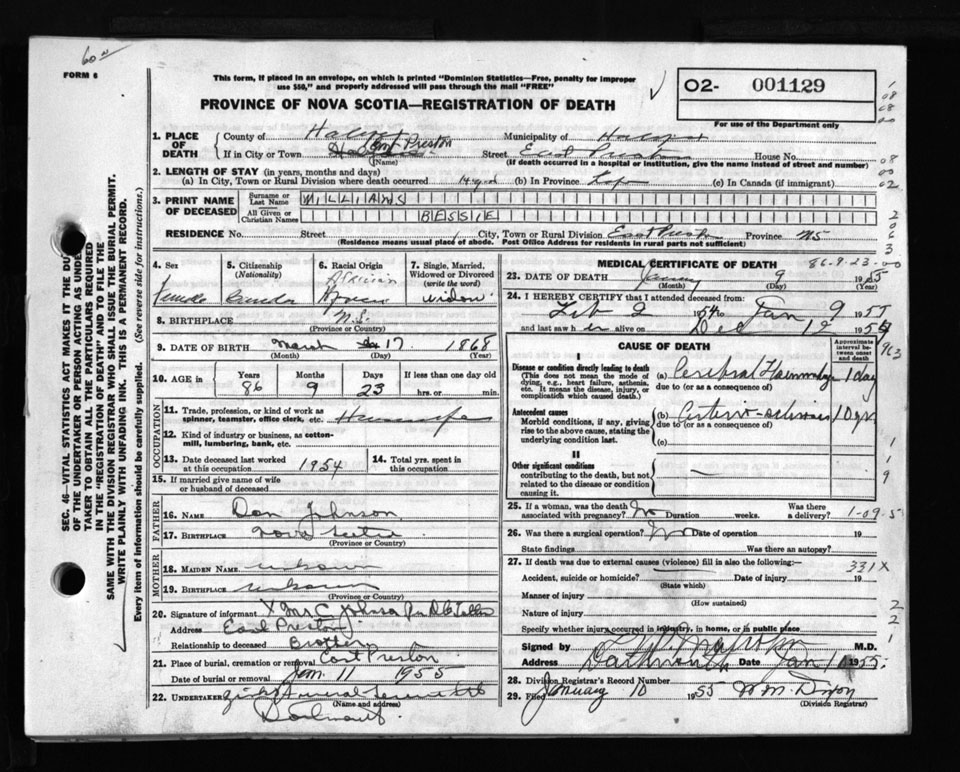 60
FORM 6
This form, if placed in an envelope, on which is printed "Dominion Statistics—Free, penalty for improper
use $50," and properly addressed will pass through the mail "FREE"
PROVINCE OF NOVA SCOTIA—REGISTRATION OF DEATH
O2- 001129
For use of the Department only
SEC. 46—VITAL STATISTICS ACT MAKES IT THE DU
OF THE UNDERTAKER OR PERSON ACTING AS UNDER
TAKER TO OBTAIN ALL THE PARTICULARS REQUIRED
IN THE "REGISTRATION OF DEATH" AND TO FILE THE
SAME WITH THE DIVISION REGISTRAR WHO SHALL ISSUE THE BURIAL PERMIT.
WRITE PLAINLY WITH UNFADING INK. THIS IS A PERMANENT RECORD.
Every item of information should be carefully supplied. (See reverse side for instructions.)
1. PLACE OF DEATH County of Halifax Municipality of Halifax
If in City or Town East Preston (Name) Street East Preston House No.
(If death occurred in a hospital or institution, give the name instead of street and number)
2. LENGTH OF STAY (in years, months and days)
(a) In City, Town or Rural Division where death occurred (b) In Province Life (c) In Canada (if immigrant)
3. PRINT NAME OF DECEASED Surname or Last Name WILLIAMS
All Given or Christian Names BESSIE
RESIDENCE No. Street City, Town or Rural Division East Preston Province NS
(Residence means usual place of abode. Post Office Address for residents in rural parts not sufficient)
4. Sex Female
5. Citizenship (Nationality) Canada
6. Racial Origin African
7. Single, Married, Widowed or Divorced (write the word) widow
8. BIRTHPLACE N.S. (Province or Country)
9. DATE OF BIRTH March 17 1868
(Month) (Day) (Year)
10. AGE in Years 86 Months 9 Days 23 If less than one day old hrs. or min.
OCCUPATION
11. Trade, profession, or kind of work as spinner, teamster, office clerk, etc. Housewife
12. Kind of industry or business, as cotton-mill, lumbering, bank, etc.
13. Date deceased last worked at this occupation 1954
14. Total yrs. spent in this occupation
15. If married give name of wife or husband of deceased
FATHER
16. Name Dan Johnson
17. Birthplace Nova Scotia
(Province or Country)
MOTHER
18. Maiden Name unknown
19. Birthplace unknown
(Province or Country)
20. Signature of informant X Mr C Johnson
Address East Preston
Relationship to deceased Brother
21. Place of burial, cremation or removal East Preston
Date of burial or removal Jan. 11 1955
22. Undertaker Funeral Service Ltd
(Name and address)
Dartmouth
MEDICAL CERTIFICATE OF DEATH 86.9.23
23. DATE OF DEATH January 9 1955
(Month) (Day) (Year)
24. I HEREBY CERTIFY that I attended deceased from:
Feb 2 1954 to Jan 9 1955
and last saw h er alive on Dec 1954
CAUSE OF DEATH
Approximate interval between onset and death
I
Disease or condition directly leading to death
(This does not mean the mode of dying, e.g., heart failure, asthenia, etc. It means the disease, injury, or complication which caused death.)
(a) Cerebral Haemorrhage 1 day
due to (or as a consequence of)
Antecedent causes
Morbid conditions, if any, giving rise to the above cause, stating the underlying condition last.
(b) Arterio-sclerosis 10 yrs
due to (or as a consequence of)
(c)
II
Other significant conditions
contributing to the death, but not related to the disease or condition causing it.
25. If a woman, was the death associated with pregnancy? No Duration weeks. Was there a delivery?
1-09-5
26. Was there a surgical operation? No Date of operation 19
State findings Was there an autopsy?
27. If death was due to external causes (violence) fill in also the following:—
331X
Accident, suicide or homicide? (State which) Date of injury 19
Manner of injury (How sustained)
Nature of injury
Specify whether injury occurred in industry, in home, or in public place
Signed by M.D.
Address Dartmouth Date Jan 10 1955
28. Division Registrar's Record Number
29. Filed January 10 1955 W.M. Dixon
(Division Registrar)